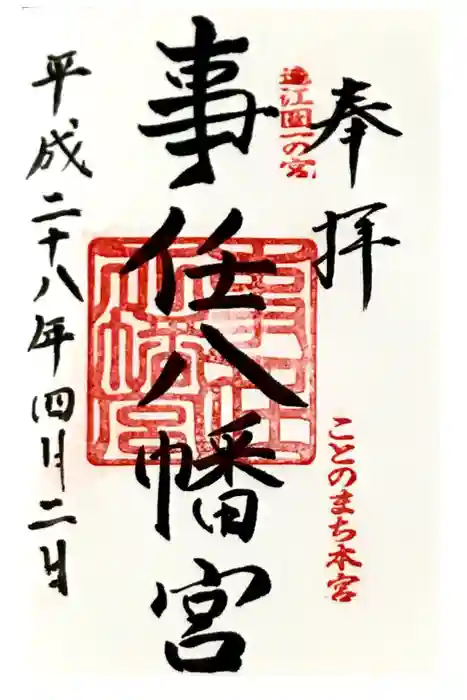 奉拝
遠江國一の宮
ことのまち本宮
事任八幡宮
平成二十八年四月二日